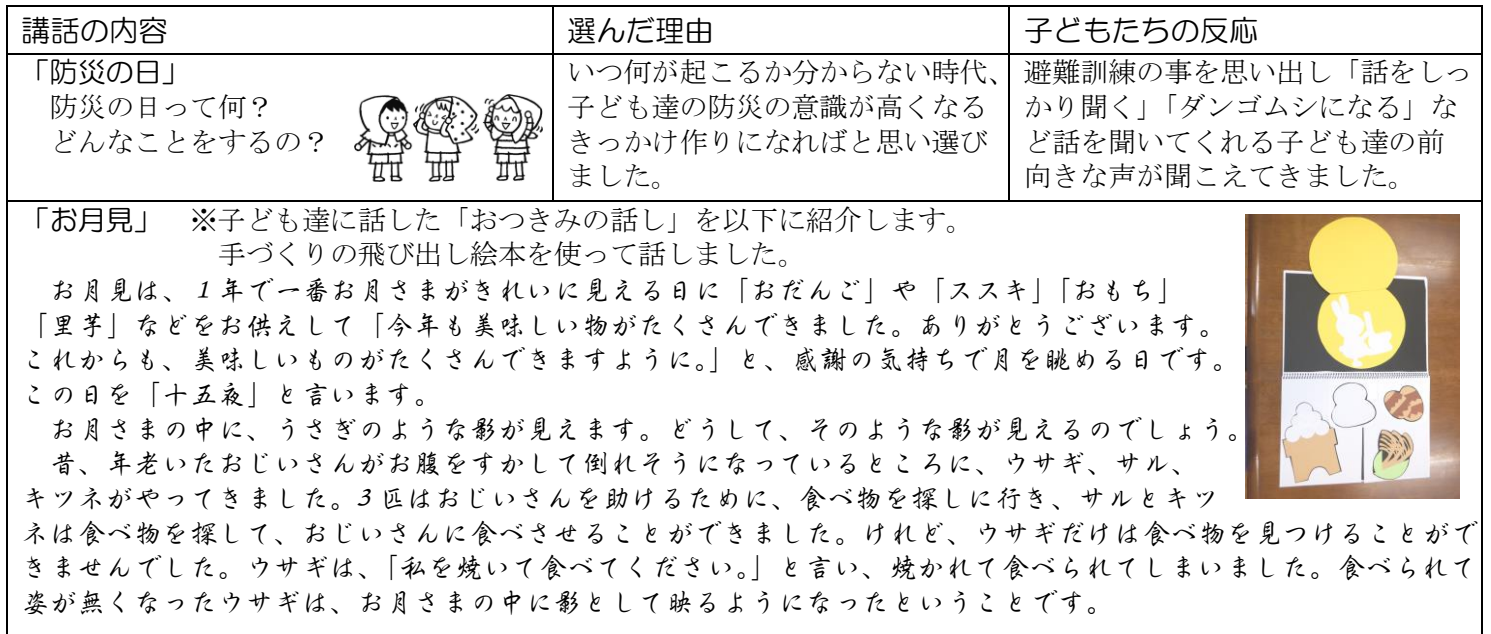 講話の内容
選んだ理由
子どもたちの反応
「防災の日」
防災の日って何？
どんなことをするの？
いつ何が起こるか分からない時代、
子ども達の防災の意識が高くなる
きっかけ作りになればと思い選び
ました。
避難訓練の事を思い出し「話をしっ
かり聞く」「ダンゴムシになる」な
ど話を聞いてくれる子ども達の前
向きな声が聞こえてきました。
「お月見」　※子ども達に話した「おつきみの話し」を以下に紹介します。
手づくりの飛び出し絵本を使って話しました。
お月見は、１年で一番お月さまがきれいに見える日に「おだんご」や「ススキ」「おもち」
「里芋」などをお供えして「今年も美味しい物がたくさんできました。ありがとうございます。
これからも、美味しいものがたくさんできますように。」と、感謝の気持ちで月を眺める日です。
この日を「十五夜」と言います。
お月さまの中に、うさぎのような影が見えます。どうして、そのような影が見えるのでしょう。
昔、年老いたおじいさんがお腹をすかして倒れそうになっているところに、ウサギ、サル、
キツネがやってきました。３匹はおじいさんを助けるために、食べ物を探しに行き、サルとキツ
ネは食べ物を探して、おじいさんに食べさせることができました。けれど、ウサギだけは食べ物を見つけることがで
きませんでした。ウサギは、「私を焼いて食べてください。」と言い、焼かれて食べられてしまいました。食べられて
姿が無くなったウサギは、お月さまの中に影として映るようになったということです。